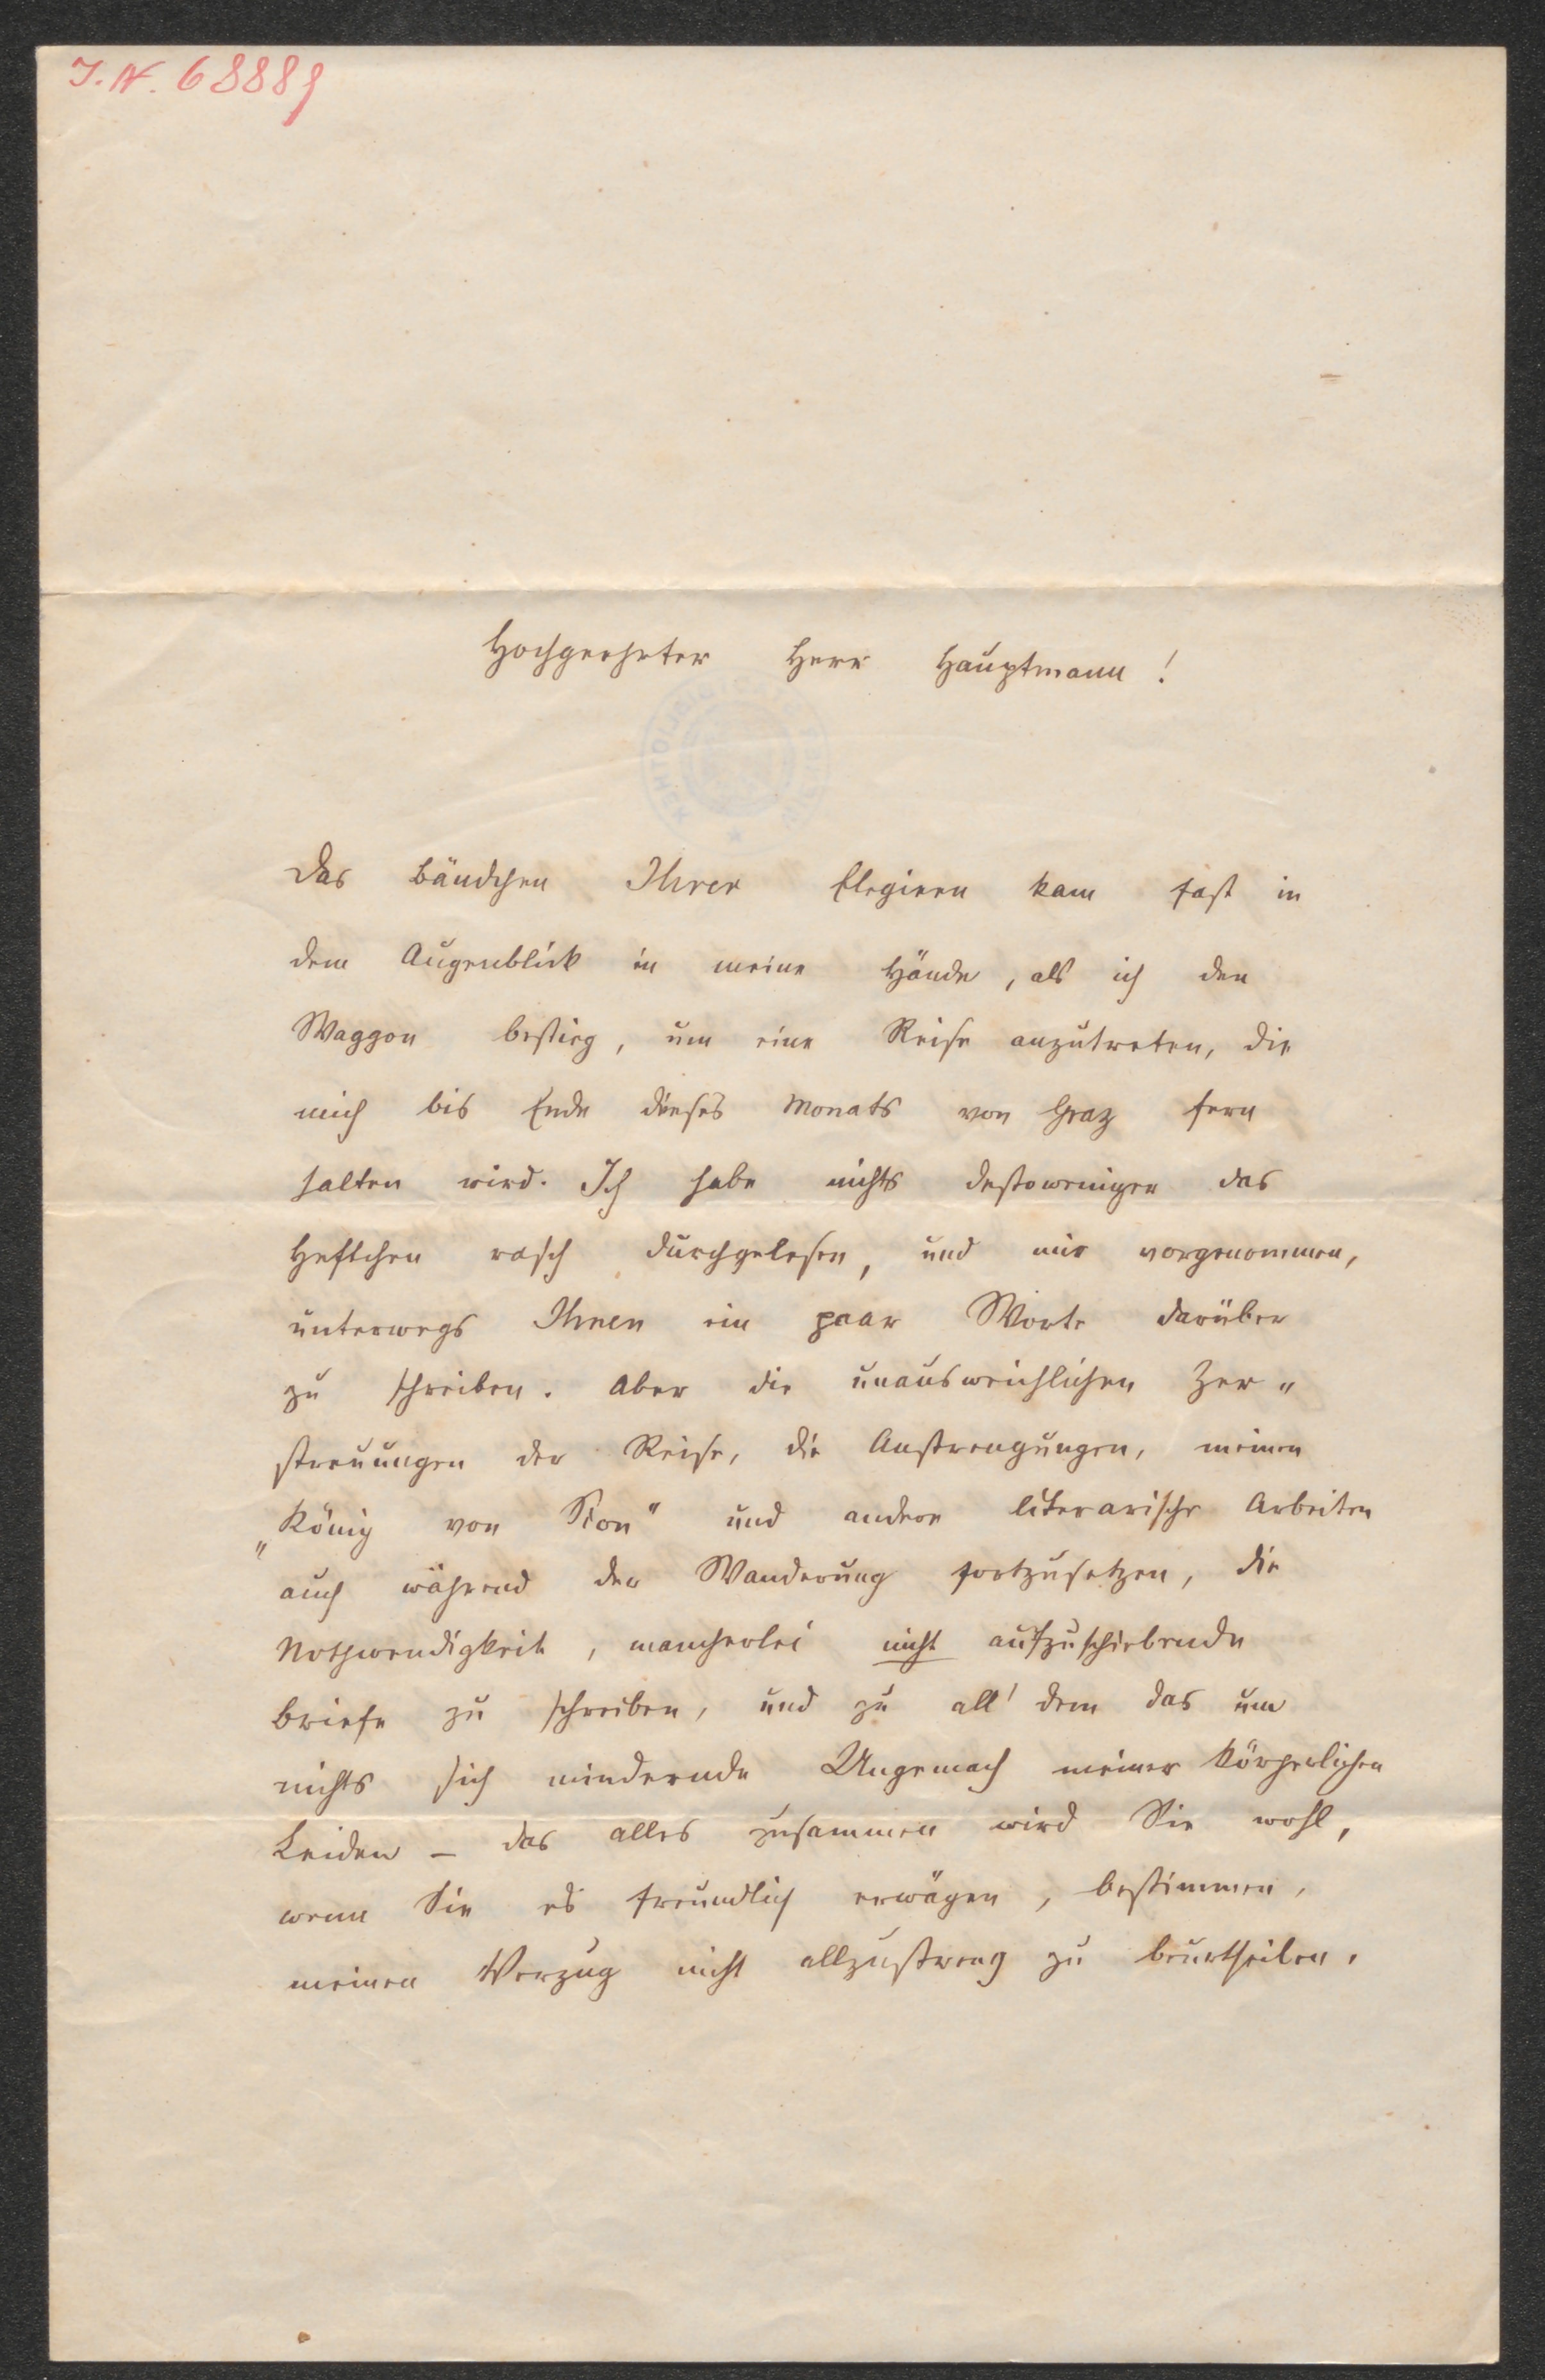 J. N. 68889
Hochgeehrter Herr Hauptmann!
Das Bändchen Ihrer Elegieen kam fast in
dem Augenblick in meine Hände, als ich den
Waggon bestieg, um eine Reise anzutreten, die
mich bis Ende dieses Monats von Graz fern
halten wird. Ich habe nichts destoweniger das
Heftchen rasch durchgelesen, und mir vorgenommen,
unterwegs Ihnen ein paar Worte darüber
zu schreiben. Aber die unausweichlichen Zer„
streuungen der Reise, die Anstrengungen, meinen
„König von Sion“ und andere literarische Arbeiten
auch während der Wanderung fortzusetzen, die
Nothwendigkeit, mancherlei nicht aufzuschiebende
Briefe zu schreiben, und zu all' dem das um
nichts sich mindernde Ungemach meiner körperlichen
Leiden – das alles zusammen wird Sie wohl,
wenn Sie es freundlich erwägen, bestimmen,
meinen Verzug nicht allzustreng zu beurtheilen.